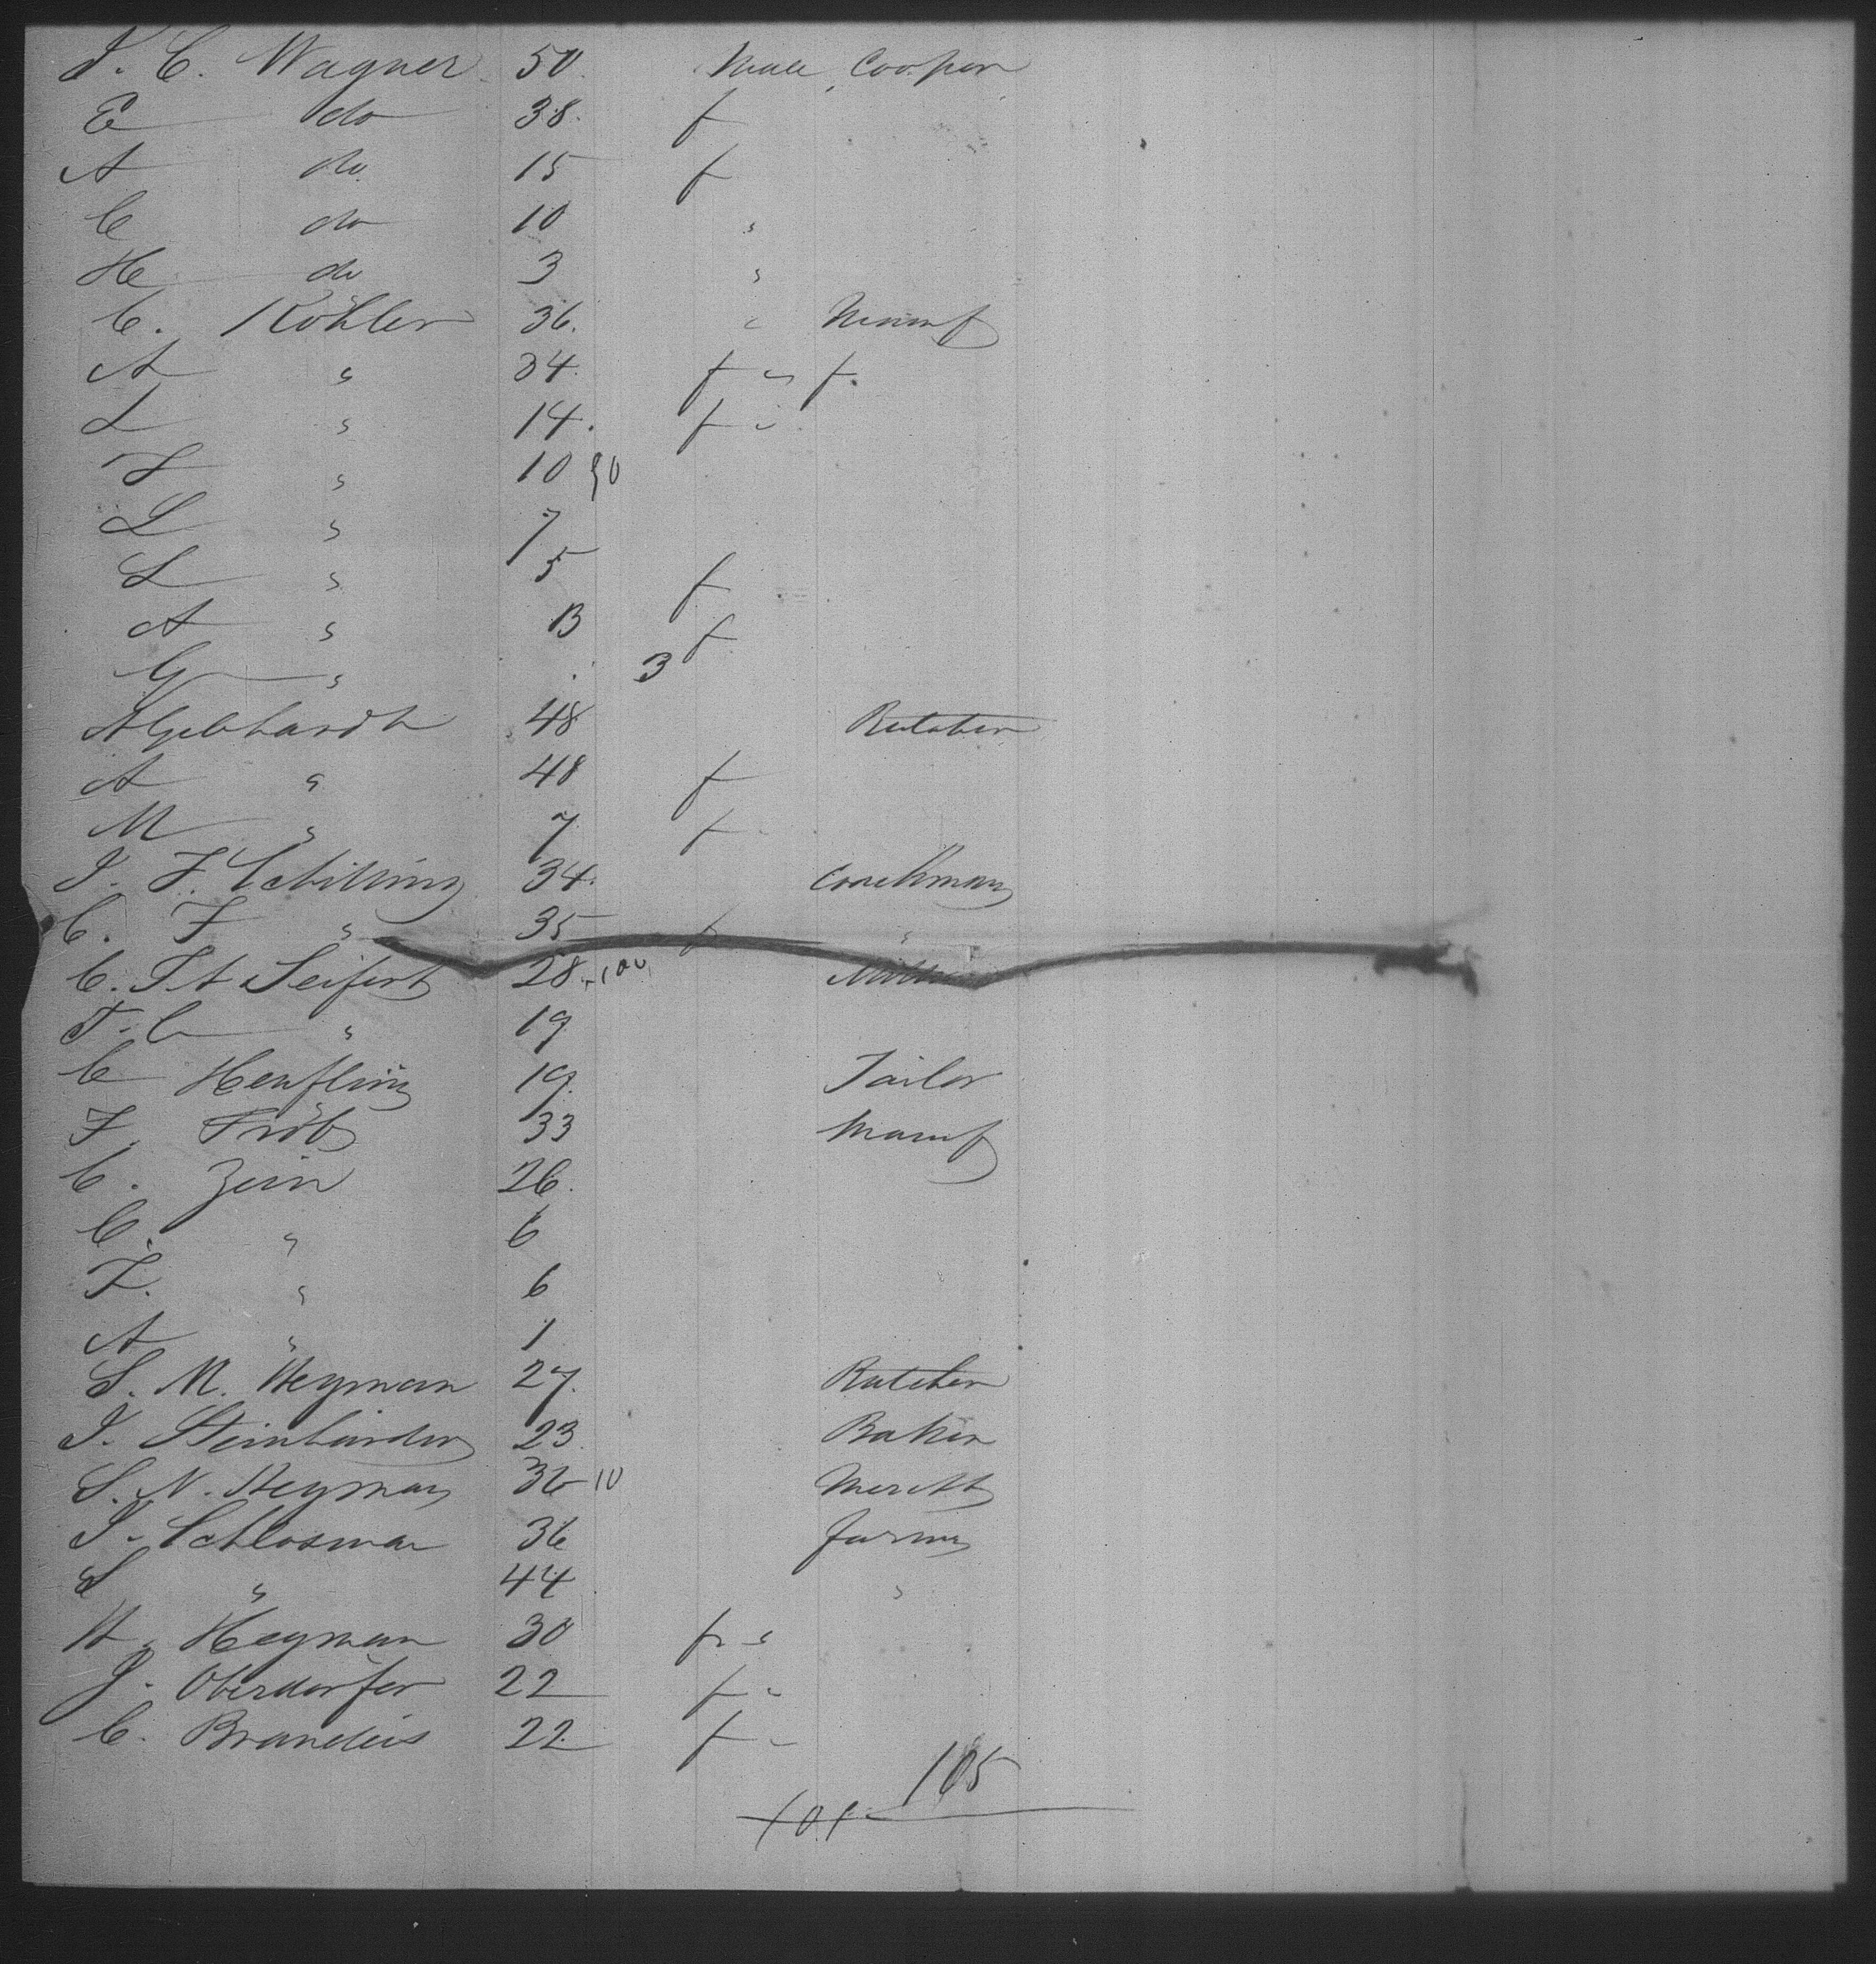 J. C. Wagner 50 Male Cooper
E do 38 f
A do 15 f
C do 10 "
H do 3 "
C. Köhler 36 " Manuf
A " 34 f " f.
L " 14 f "
F " 10 90
L " 7
L " 5 f
A " 13 f
G " 3
A Gebhardt 48 Butcher
A " 48 f
M " 7 f
J. F. Schilling 34 Coachman
C. F " 35 f "
C. F A Seifert 28 100
F. C " 19
C Henfling 19 Tailor
F. Fröb 33 Manuf
C. Zein 26
C. " 6
F. " 6
A " 1
S. M. Heyman 27 Butcher
J. 23 Baker
S. N. Heyman 36 10 Mercht
J. Schlosman 36 farmer
S " 44 "
H. Heyman 30 f "
J. Oberdorfer 22 f "
C. Brandeis 22 f "
105
101